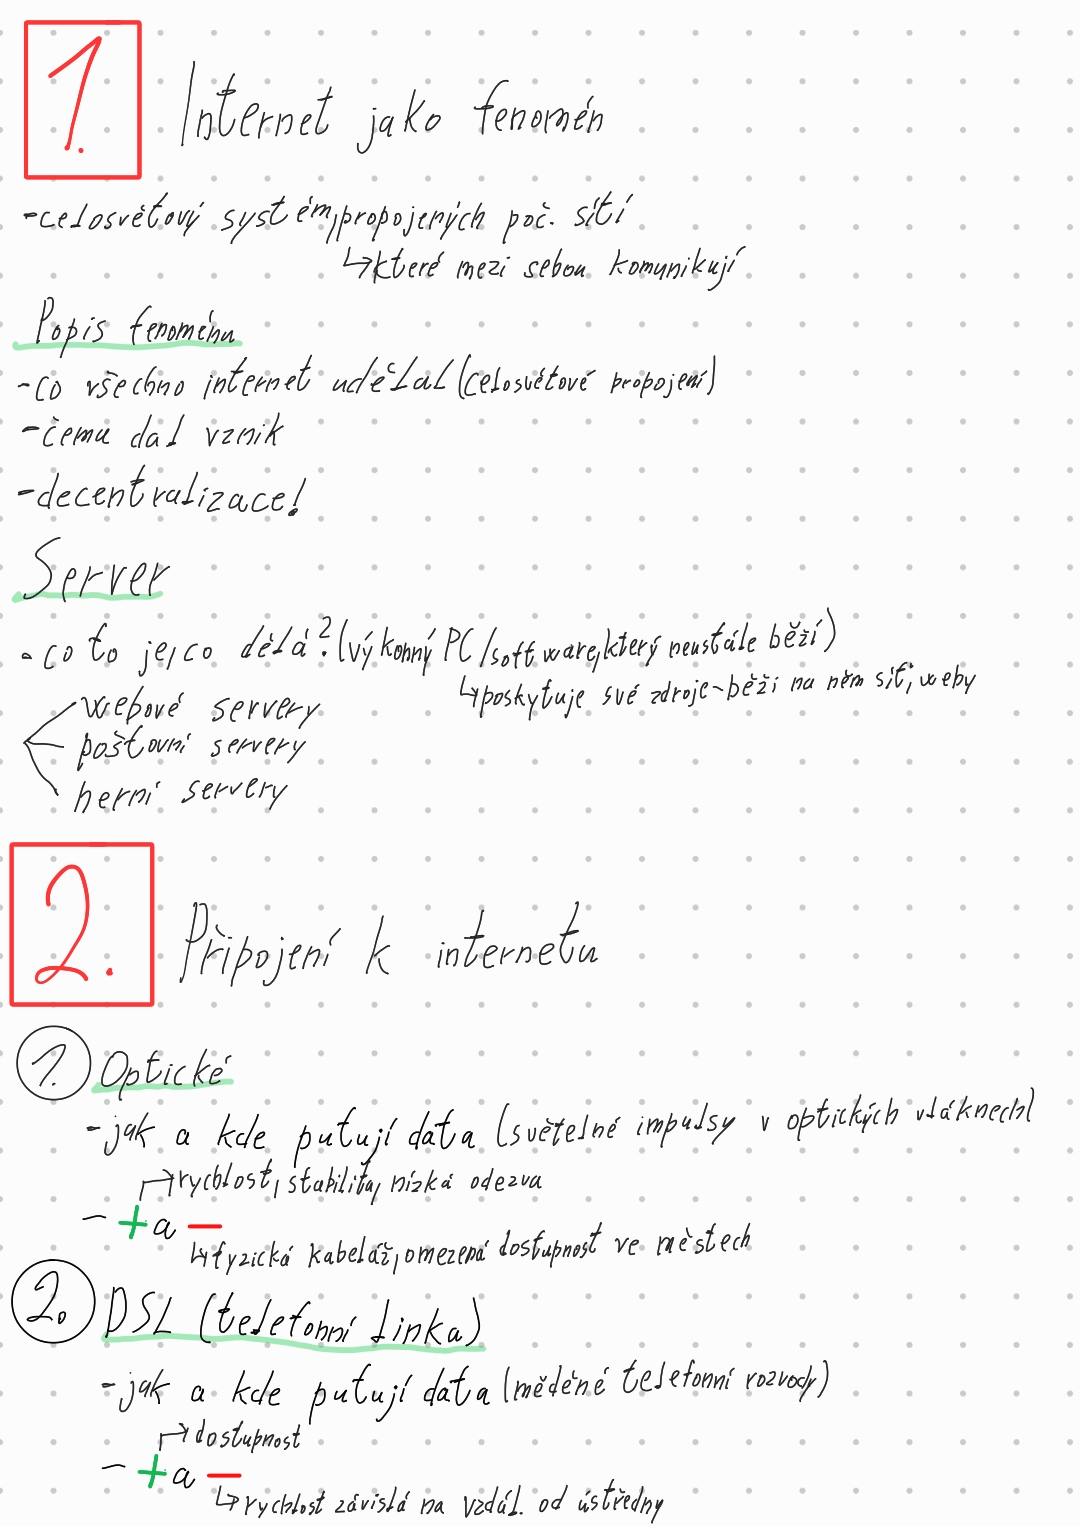 1. Internet jako fenomén
-celosvětový systém, propojených poč. sítí
↳které mezi sebou komunikují
Popis fenoménu
-co všechno internet udělal (celosvětové propojení)
-čemu dal vznik
-decentralizace!
Server
-co to je, co dělá? (výkonný PC/software, který neustále běží)
↳poskytuje své zdroje-běží na něm síť, weby
webové servery
poštovní servery
herní servery
2. Připojení k internetu
1. Optické
-jak a kde putují data (světelné impulsy v optických vláknech)
→rychlost, stabilita, nízká odezva
- + a -
↳fyzická kabeláž, omezená dostupnost ve městech
2. DSL (telefonní linka)
-jak a kde putují data (měděné telefonní rozvody)
→dostupnost
- + a -
↳rychlost závislá na vzdál. od ústředny